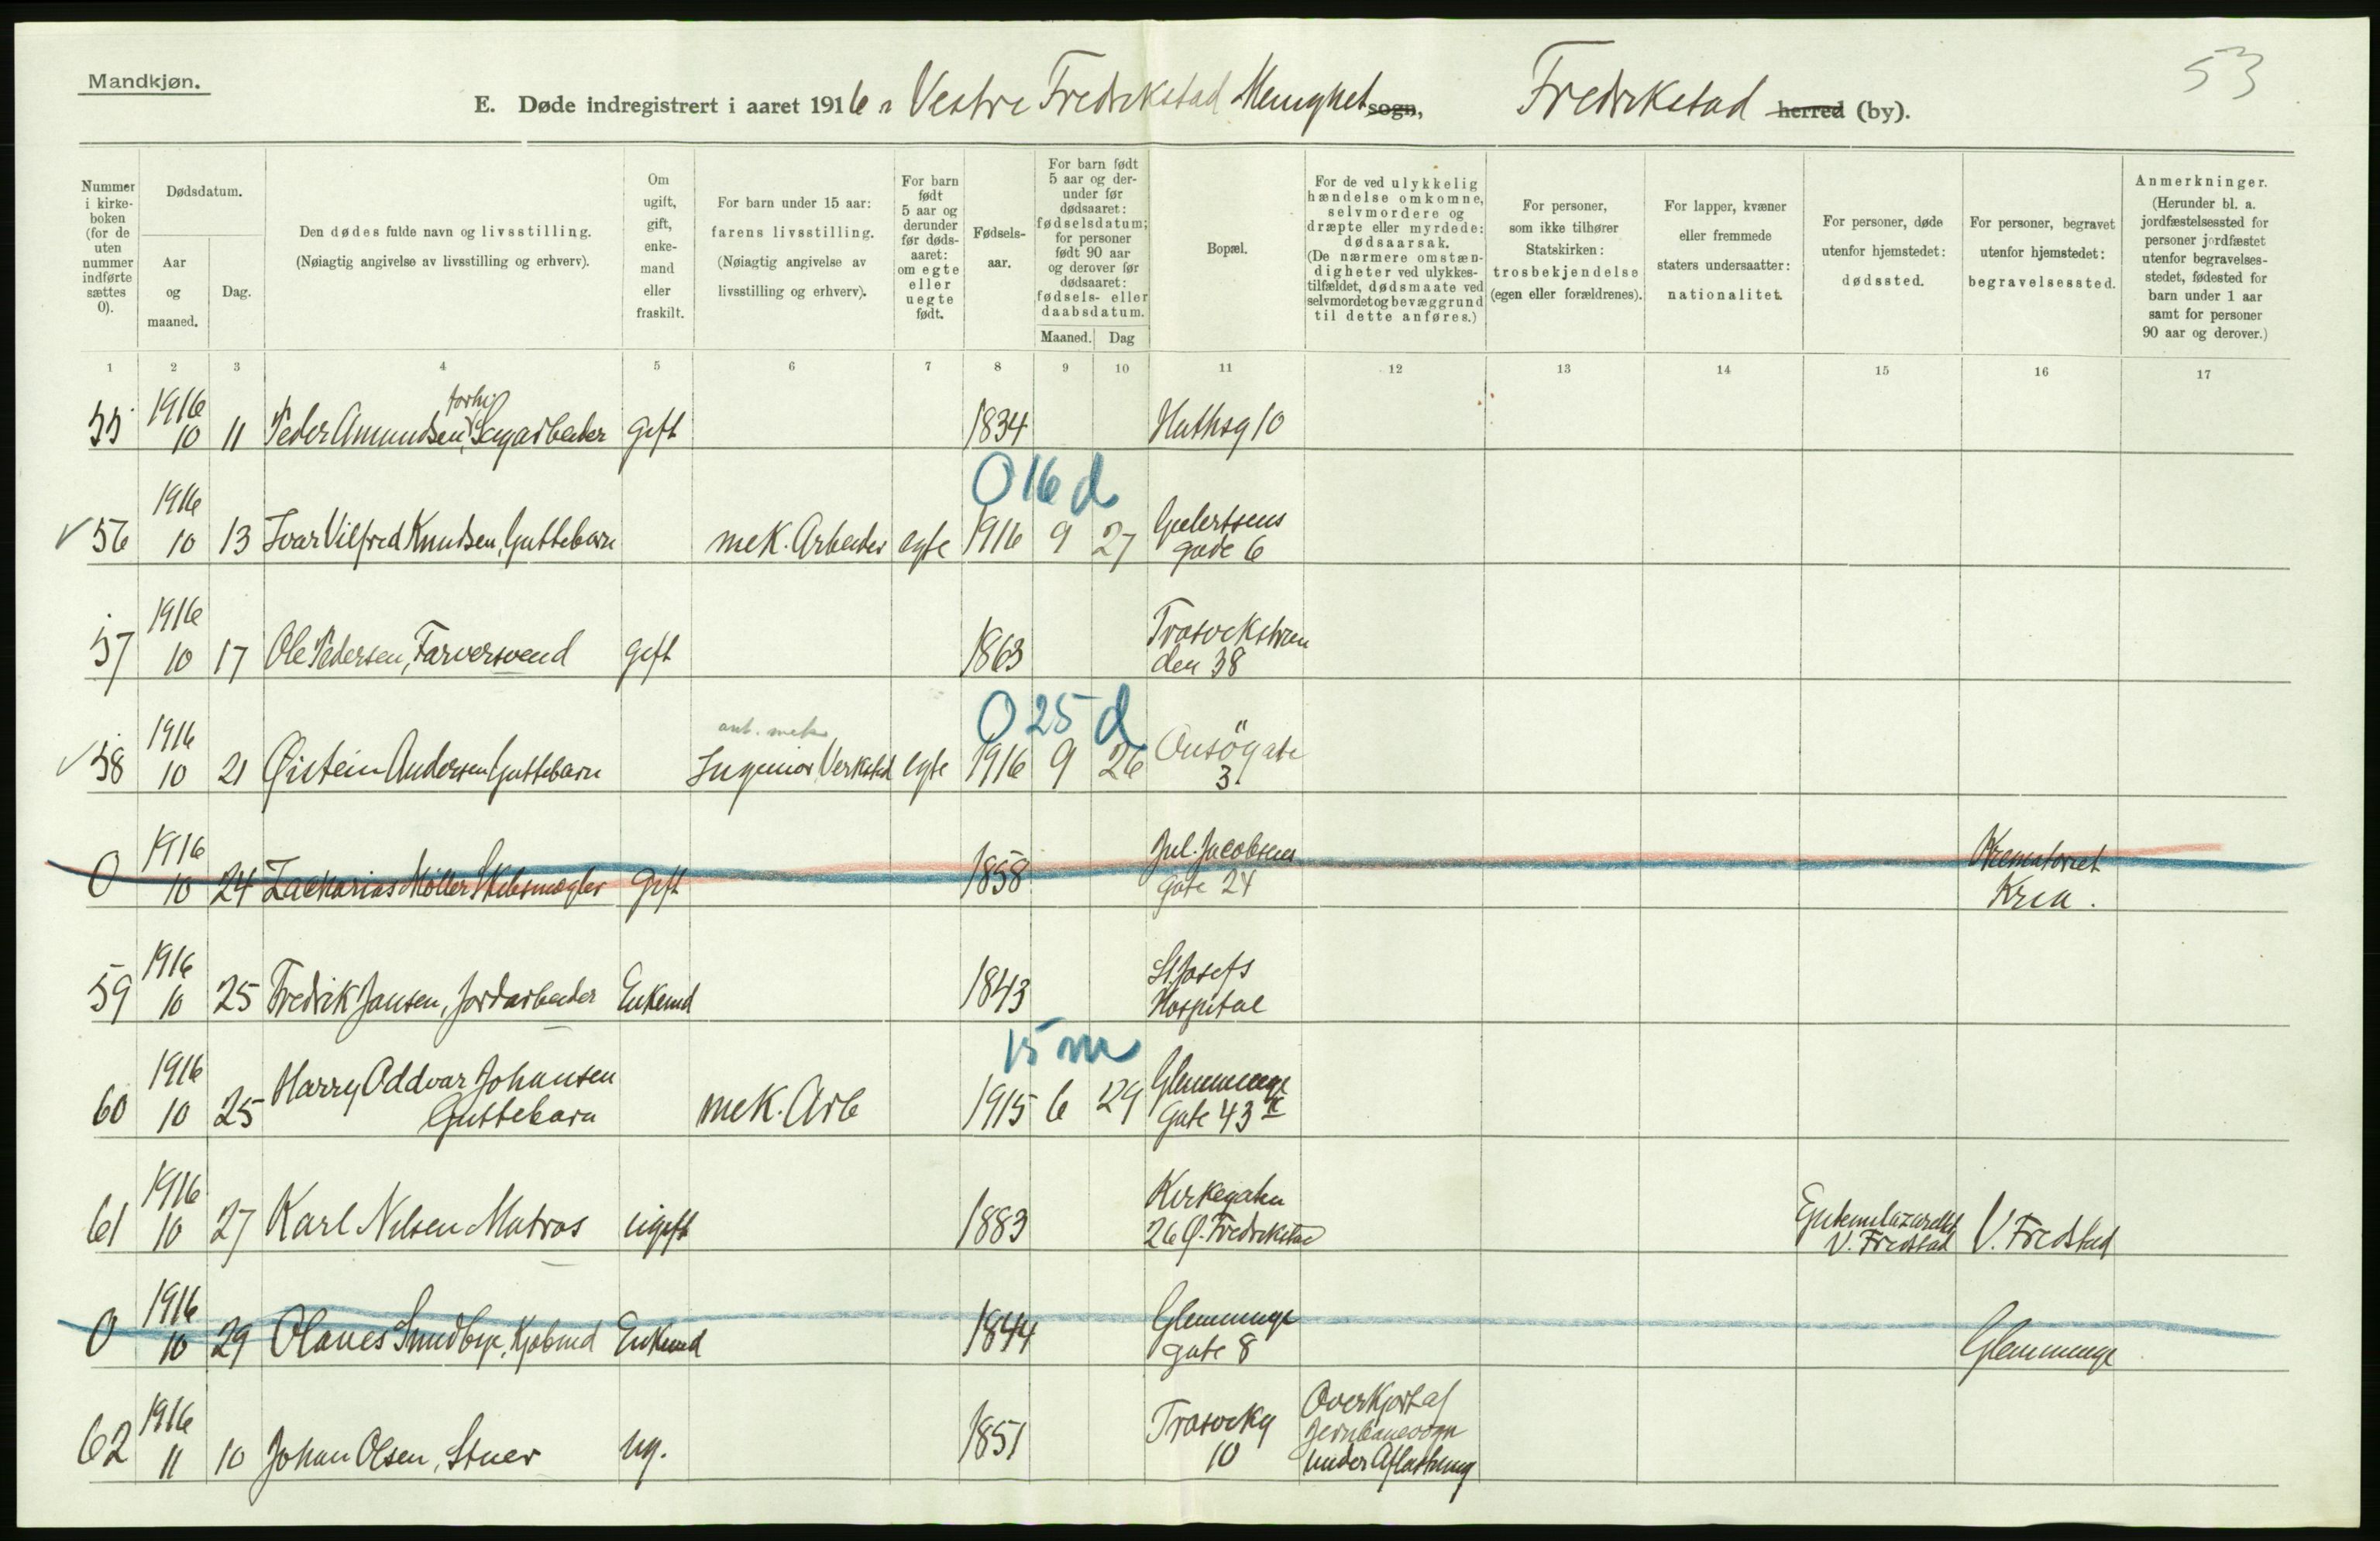 Mandkjøn.
53
E. Døde indregistrert i aaret 1916 i Vestre Fredrikstad Menighet sogn, Fredrikstad herred (by).
Nummer i kirke-boken (for de uten nummer indførte sættes 0).
Dødsdatum.
Aar og maaned.
Dag.
Den dødes fulde navn og livsstilling.
(Nøiagtig angivelse av livsstilling og erhverv).
Om ugift, gift, enke-mand eller fraskilt.
For barn under 15 aar: farens livsstilling.
(Nøiagtig angivelse av livsstilling og erhverv).
For barn født 5 aar og derunder før døds-aaret: om egte eller uegte født.
Fødsels-aar.
For barn født 5 aar og der-under før dødsaaret: fødselsdatum; for personer født 90 aar og derover før dødsaaret: fødsels- eller daabsdatum.
Maaned.
Dag
Bopæl.
For de ved ulykkelig hændelse omkomne, selvmordere og dræpte eller myrdede: dødsaarsak.
(De nærmere omstæn-digheter ved ulykkes-tilfældet, dødsmaate ved selvmordet og bevæggrund til dette anføres.)
For personer, som ikke tilhører Statskirken: trosbekjendelse (egen eller forældrenes).
For lapper, kvæner eller fremmede staters undersaatter: nationalitet.
For personer, døde utenfor hjemstedet: dødssted.
For personer, begravet utenfor hjemstedet: begravelsessted.
Anmerkninger.
(Herunder bl. a. jordfæstelsessted for personer jordfæstet utenfor begravelses-stedet, fødested for barn under 1 aar samt for personer 90 aar og derover.)
1 2 3 4 5 6 7 8 9 10 11 12 13 14 15 16 17
55 1916 10 11 Peder Amundsen, forhv Sagarbeider gift 1834 Huthsg 10
0 16 d
56 1916 10 13 Ivar Vilfred Knudsen, Guttebarn mek. Arbeider egte 1916 9 27 Geelertsens gade 6
57 1916 10 17 Ole Pedersen, Farversvend gift 1863 Trosvikstranden 38
0 25 d
58 1916 10 21 Øistein Andersen Guttebarn Ingeniør Verksted egte 1916 9 26 Onsögate 3.
0 1916 10 24 Zackarias Møller Skibsmægler gift 1858 Jul. Jacobsens gate 24 Krematoriet Kria.
59 1916 10 25 Fredrik Jansen, Jordarbeider Enkemd 1843 St. Josefs Hospital
15 m
60 1916 10 25 Harry Oddvar Johansen Guttebarn mek. Arb 1915 6 29 Glemminge Gate 43
61 1916 10 27 Karl Nilsen Matros ugift 1883 Kirkegaten 26 Ø. Fredrikstad Epidemilazarettet V. Fredstad V. Fredstad
0 1916 10 29 Olaves Sundbye, Kjøbmd Enkemd 1844 Glemminge gate 8 Glemminge
62 1916 11 10 Johan Olsen, Stuer ug. 1851 Trosvikg 10 Overkjørt af Jernbanevogn under Aflastning